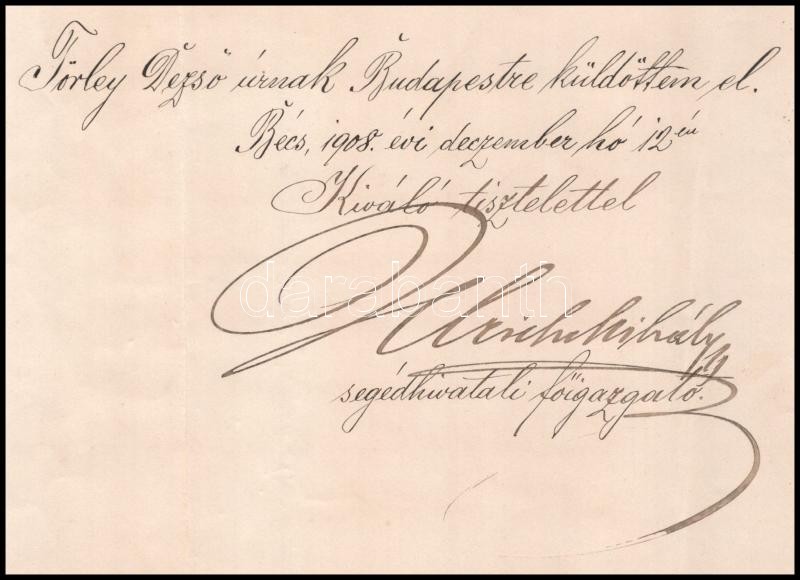 Törley Dezső úrnak Budapestre küldöttem el.
Bécs, 1908. évi deczember hó 12 én
Kiváló tisztelettel
darabanth
Mihály
segédhivatali főigazgató.